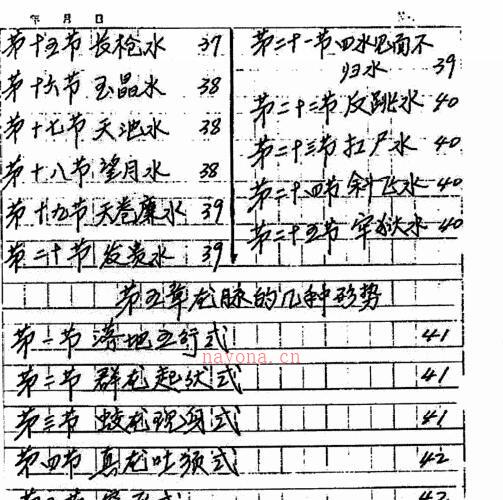 年 月 日
第十五节 长枪水 37
第十六节 玉晶水 38
第十七节 天池水 38
第十八节 望月水 38
第十九节 天卷廉水 39
第二十节 发贵水 39
第二十一节 四水见面不
归水 39
第二十二节 反跳水 40
第二十三节 扛尸水 40
第二十四节 斜飞水 40
第二十五节 牢狱水 40
第五章 龙脉的几种形势
第一节 落地五行式 41
nayona.cn
第二节 群龙起伏式 41
第三节 蛟龙现身式 41
第四节 真龙吐须式 42
42